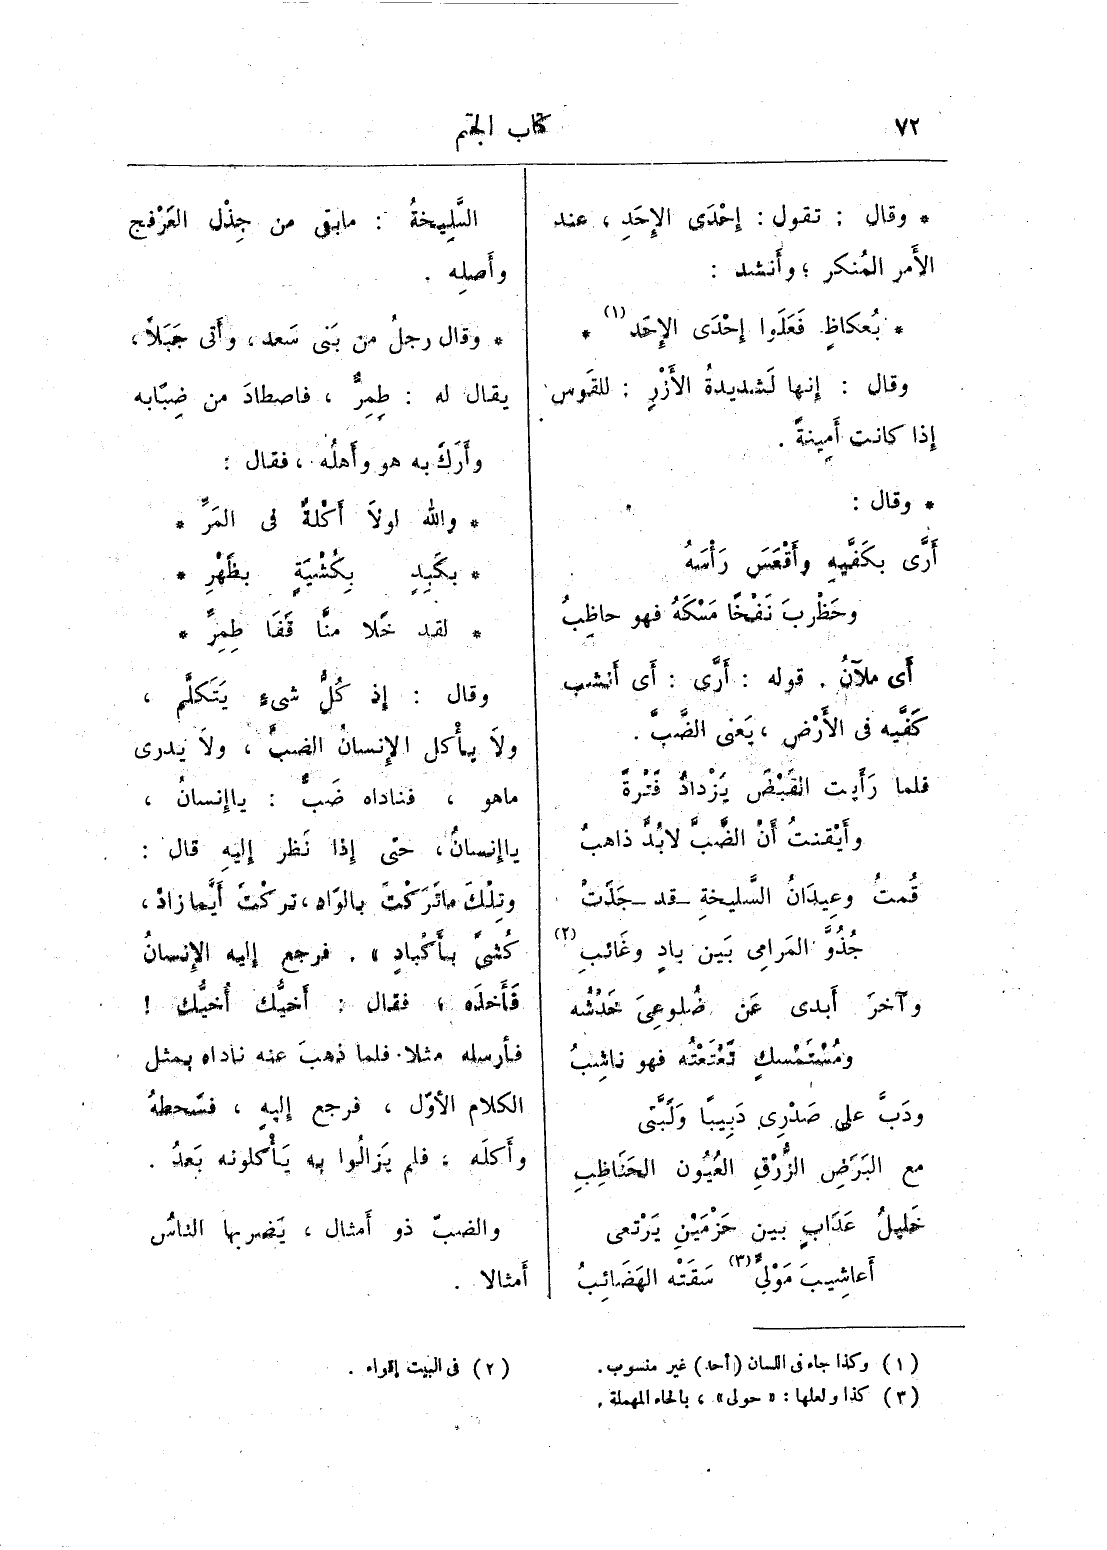 ٧٢
كتاب الجيم
* وقال : تقول : إِحْدَى الإِحَدِ ، عند
الأَمر المُنكر ؛ وأَنشد :
* بُعكاظٍ فَعَدَوا إِحْدَى الإِحَد (١) *
وقال : إِنها لَشديدةُ الأَزْرِ : للقَوس
إذا كانت أَمِينةً .
* وقال :
أَرَّى بكَفَّيهِ وأَقْعَسَ رَأْسَهُ
وحَظْربَ نَفْخًا مَسْكَهُ فهو حاظِبُ
أَى ملآنُ . قوله : أَرَّى : أَى أَنشب
كَفَّيه فى الأَرْض ، يَعنى الضَّبَّ .
فلما رَأَيت القَبْضَ يَزْدادُ فَتْرةً
وأَيْقنتُ أَنْ الضَّبَّ لابُدَّ ذاهبُ
قُمتُ وعِيدَانُ السَّليخةِ قد جَذَتْ
جُذُوَّ المَرامِى بَين بادٍ وغَائبِ (٢)
وآخرَ أَبدى عَن ضُلوعِىَ خَدْشُه
ومُسْتَمْسكٍ تَعْتَعْتُه فهو ناشِبُ
ودَبَّ على صَدْرِى دَبِيبًا وَلَبَّتى
مع البَرَضِ الزُّرْقِ العُيُون الحَنَاظِبِ
خَليلُ عَدَابٍ بين حَزْمَيْنِ يَرْتعى
أعاشِيبَ مَوْلِىٍّ (٣) سَقَتْه الهَضَائِبُ
السَّلِيخةُ : مابقى من جِذْل العَرْفج
وأَصلِه .
* وقال رجلُ من بَنى سَعد ، وأَتى جَبَلاً ،
يقال له : طِمِرٌّ ، فاصطادَ من ضِبّابه
وأَرَكَ به هو وأَهلُه ، فقال :
* والله لولاَ أَكْلةٌ فى المَرِّ *
* بكَبِدٍ بِكُشْيَةٍ بظَهْرِ *
* لقد خَلا منَّا قَفَا طِمِرِّ *
وقال : إذ كُلُّ شىءٍ يَتَكلَّم ،
ولاَ يأْكل الإِنسانُ الضبَّ ، ولاَ يدرى
ماهو ، فناداه ضَبٌّ : ياإِنسانُ ،
ياإِنسانُ ، حتى إذا نَظر إليهِ قال :
وتِلْكَ ماتَرَكْتَ بالوَاد ، تركْتَ أَيَّمازادْ ،
كُشىً بأَكْبادِ » . فرجع إليه الإِنسانُ
فَأَخذَه ، فقال : أَخيُّك أُخيُّك !
فأرسله مثلا . فلما ذهبَ عنه ناداه بمثل
الكلام الأوّل ، فرجع إليهِ ، فسَحطهُ
وأَكلَه ، فلم يَزالُوا به يَأْكلونه بَعدُ .
والضبّ ذو أَمثال ، يَضربها الناسُ
أَمثالا .
(١) وكذا جاء فى اللسان (أحد) غير منسوب .
(٢) فى البيت إقواء .
(٣) كذا ولعلها : « حولى » ، بالحاء المهملة .